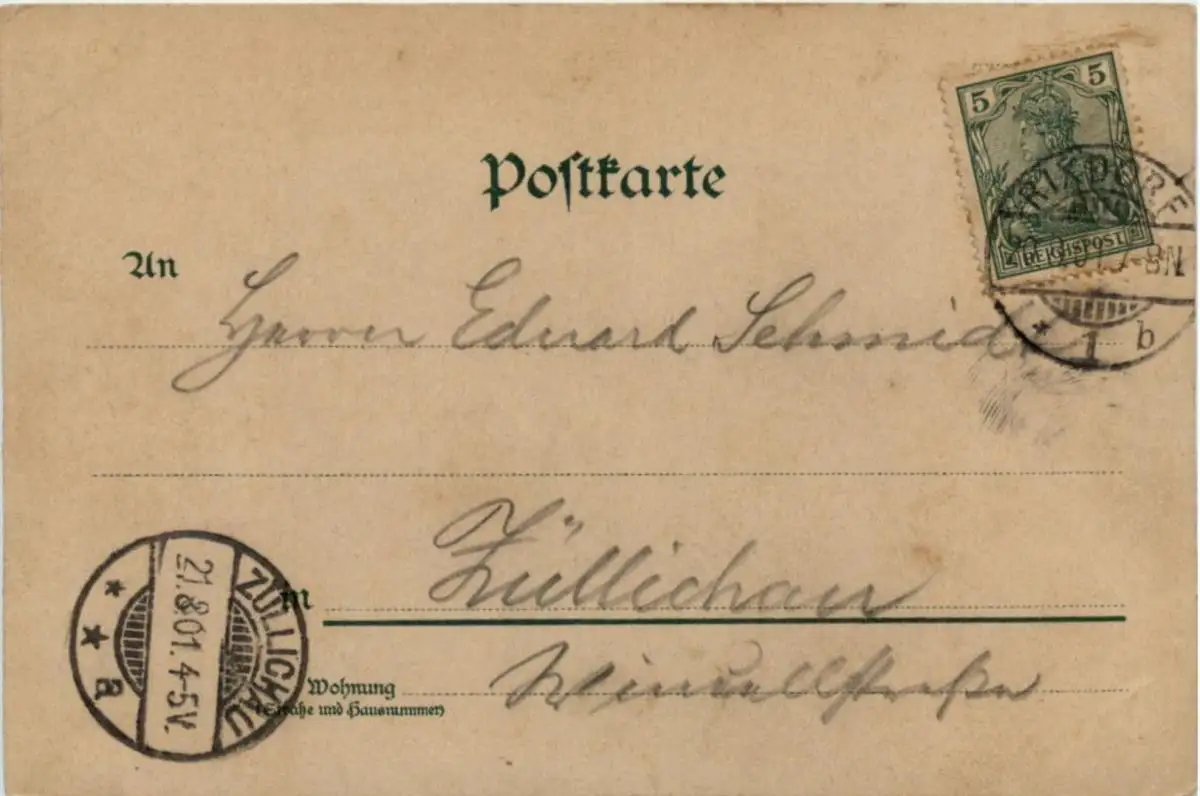 5 5
REICHSPOST
RIXDORF
1 b
Postkarte
An
Herrn Eduard Schmidt
Züllichau
in
ZÜLLICHAU
21.8.01. 4-5V.
a
Wohnung
(Straße und Hausnummer)